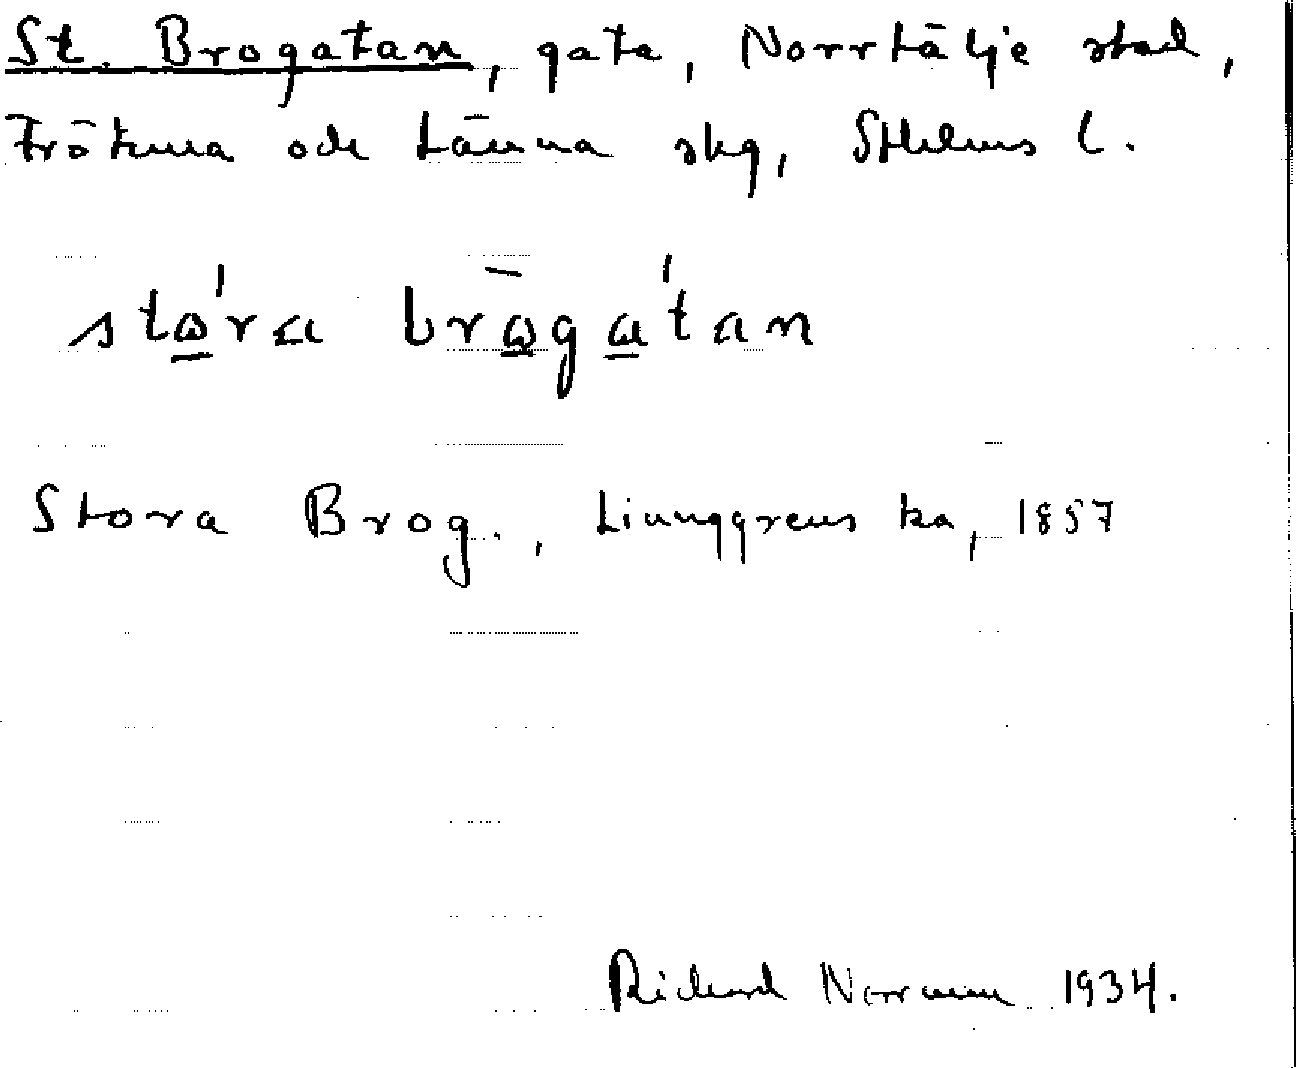 St. Brogatan, gata, Norrtälje stad,
Frötuna och Länna skg, Sthlms l.
stώ̲ra brω̲̄gá̲tan
Stora Brog., Ljunggrens ka, 1857
Richard Norrman 1934.